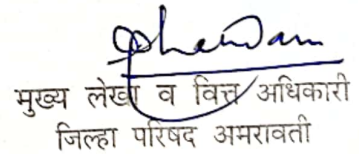 मुख्य लेखा व वित्त अधिकारी
जिल्हा परिषद अमरावती